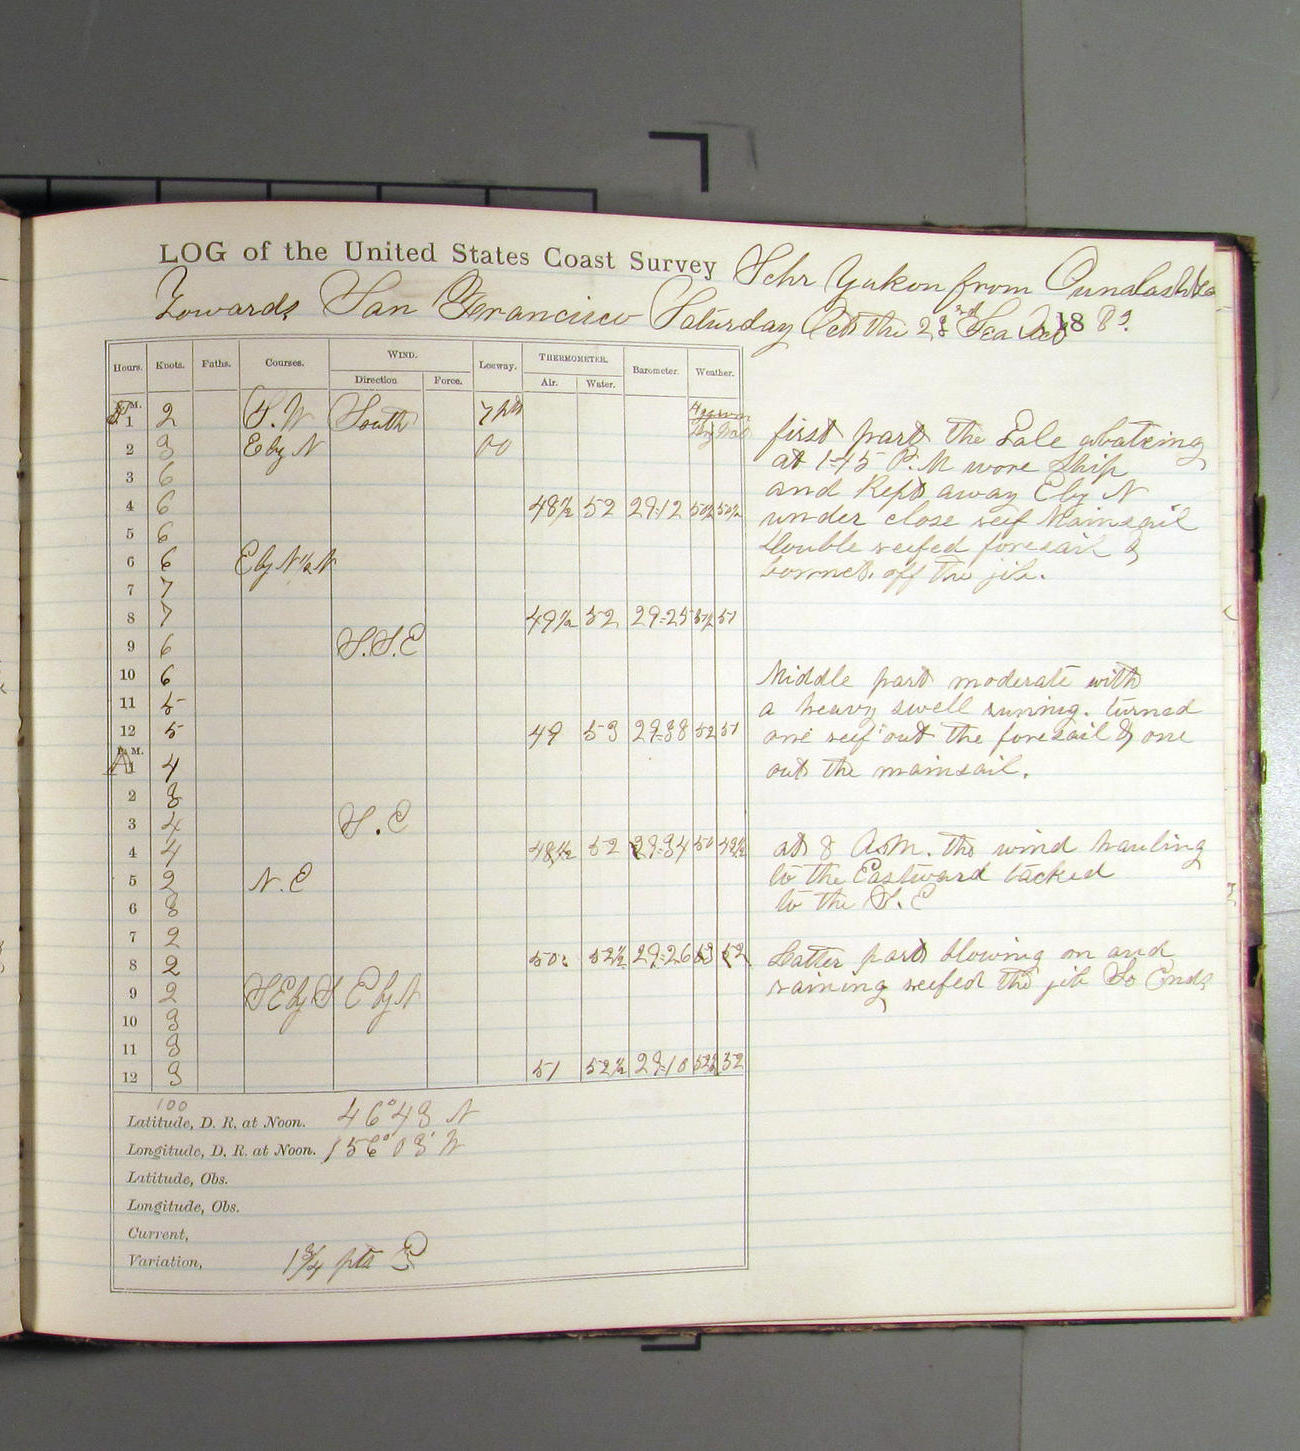 LOG of the United States Coast Survey Schr Yukon from Ounalashka
Towards San Francisco Saturday Oct the 23rd Sea 18 80.
Hours. Knots. Faths. Courses. WIND. Leeway. THERMOMETER. Barometer. Weather.
Direction Force. Air. Water.
P M.
1 2 S.W South 7 pts
2 3 E by N 00
3 6
4 6 48½ 52 29.12 50½ 50½
5 6
6 6 E by N ½ N
7 7
8 7 49½ 52 29.25 51½ 51
9 6 S.S.E
10 6
11 5
12 5 49 53 29.38 52 51
A M.
1 4
2 3
3 4 S.E
4 4 48½ 52 29.34 50 49½
5 2 N.E
6 3
7 2
8 2 50 52½ 29.26 53 52
9 2 SE by S E by N
10 3
11 3
12 3 51 52½ 29.10 52½ 52
100
Latitude, D. R. at Noon. 46° 43 N
Longitude, D. R. at Noon. 156° 03' W
Latitude, Obs.
Longitude, Obs.
Current,
Variation, 1¾ pts E
first part the Gale abateing
at 1-45 P.M wore Ship
and Kept away E by N
under close reef Mainsail
Double reefed foresail &
bonnet off the jib.
Middle part moderate with
a heavy swell runing. turned
one reef out the foresail & one
out the mainsail.
at 8 A.M. the wind hauling
to the Eastward tacked
to the S.E
Latter part blowing on and
raining reefed the jib So Ends